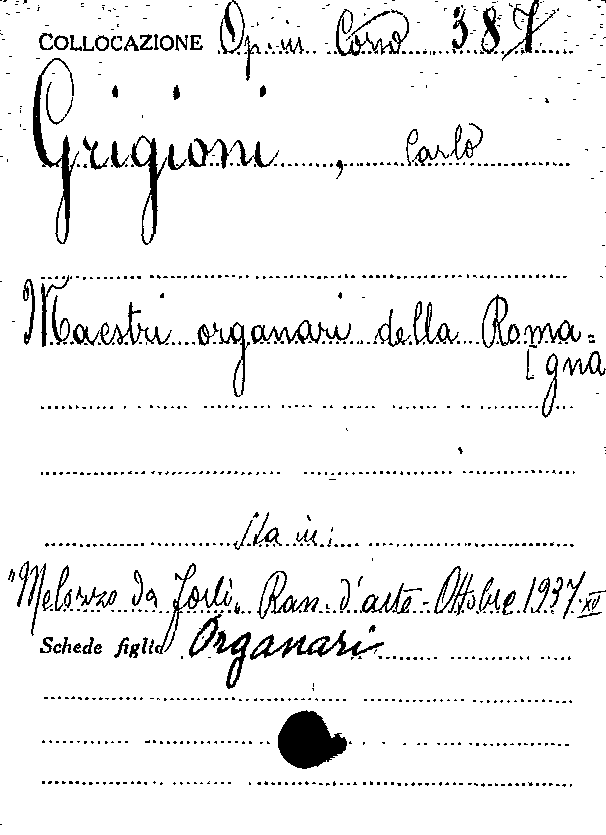 COLLOCAZIONE Op. in Corso 387
Grigioni, Carlo
Maestri organari della Roma=
[gna
Sta in:
"Melozzo da Forlì" Ras. d'arte - Ottobre 1937-XV
Schede figlie Organari